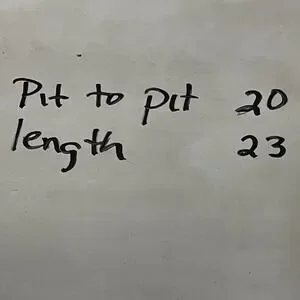 Pit to pit 20
length 23